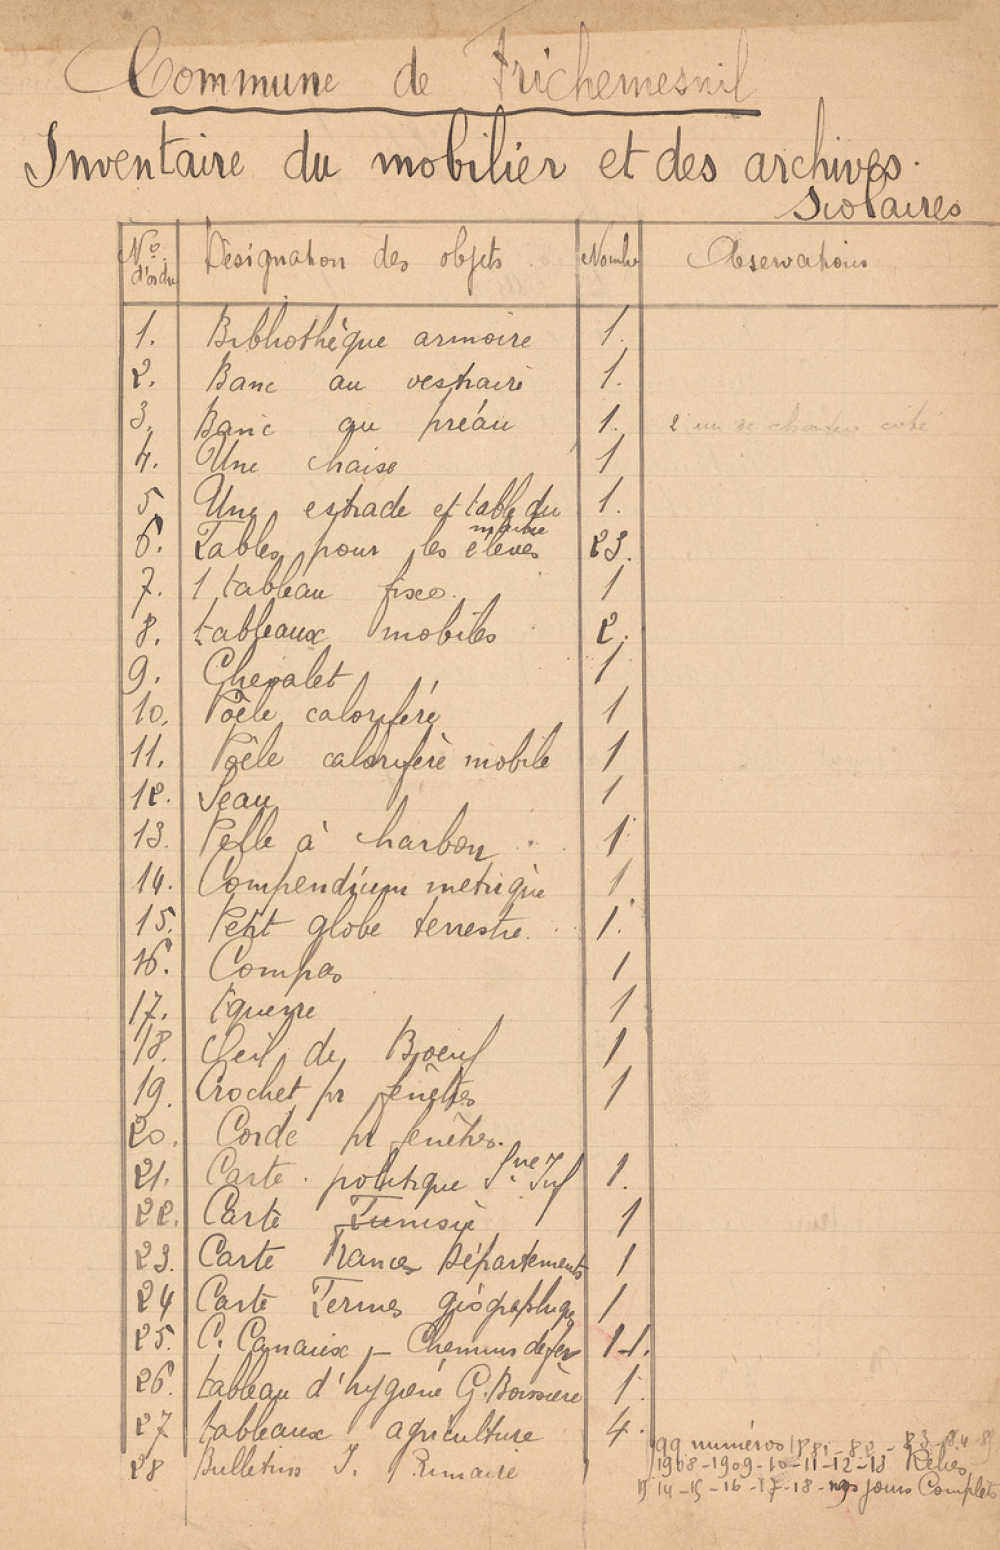 Commune de Frichemesnil
Inventaire du mobilier et des archives.
scolaires
N° d'ordre Désignation des objets Nombre Observations
1. Bibliothèque armoire 1.
2. Banc au vestiaire 1.
3. Banc au préau 1. 2 un
4. Une chaise 1
5 Une estrade et table du maître 1.
6. Tables pour les élèves 23.
7. 1 tableau fixe. 1
8. tableaux mobiles 2.
9. Chevalet 1
10. Poêle calorifère 1
11. Poêle calorifère mobile 1
12. Seau 1
13. Pelle à charbon 1
14. Compendium métrique 1
15. Petit globe terrestre. 1.
16. Compas 1
17. Equerre 1
18. Oeil de Boeuf 1
19. Crochet pr fenêtres 1
20. Corde pr fenêtres.
21. Carte politique Sne Inf 1.
22. Carte Tunisie 1
23. Carte France Départements 1
24 Carte Termes géographiques 1
25. C. Canaux - Chemins de fer 1-1.
26. tableau d'hygiène G. Boissière 1.
27 tableaux agriculture 4.
28 Bulletins I. Primaire
99 numéros 1881-82-83-84-85
1908-1909-10-11-12-13 Reliés
19 14-15-16-17-18- Complets